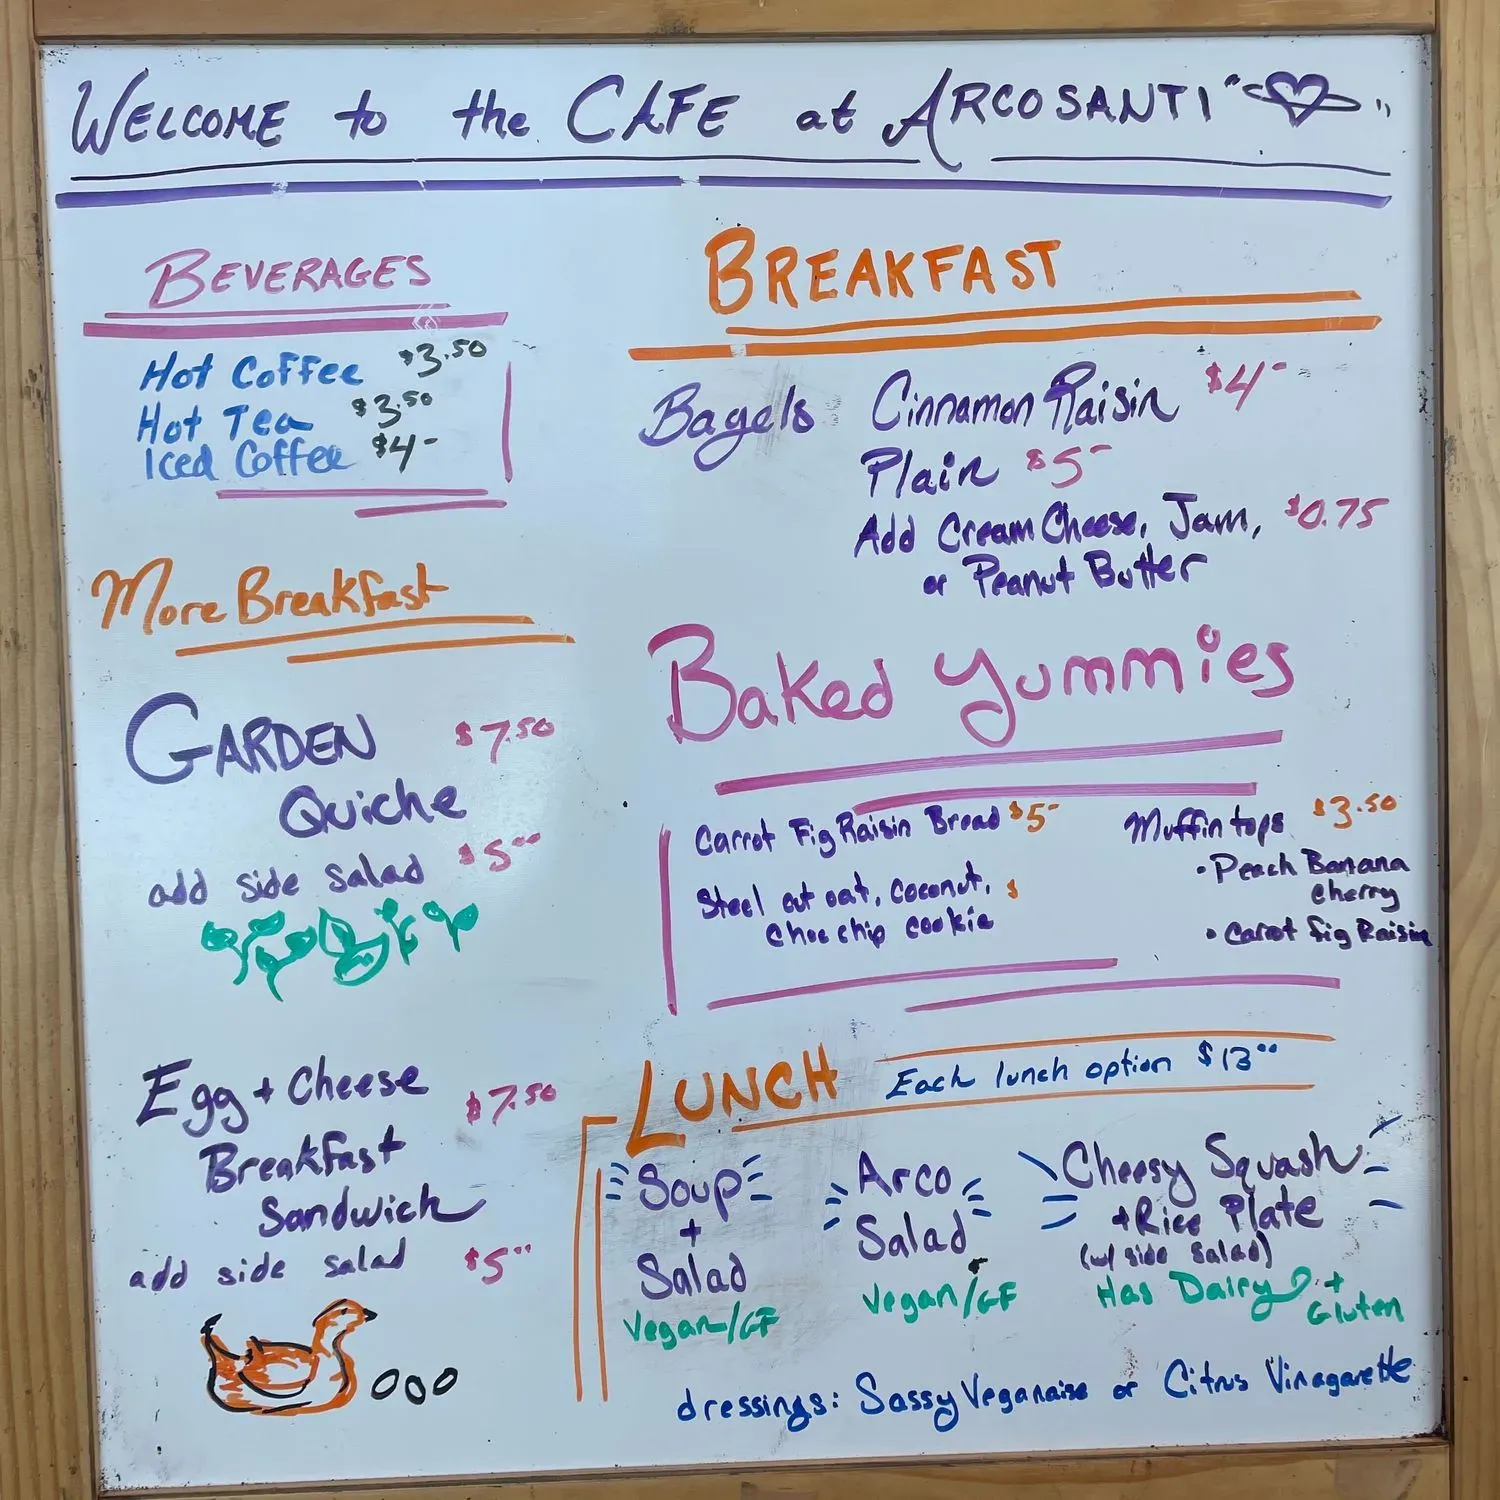 WELCOME to the CAFE at ARCOSANTI
BEVERAGES
Hot Coffee $3.50
Hot Tea $3.50
Iced Coffee $4-
More Breakfast
GARDEN $7.50
Quiche
add side salad $5.00
Egg + Cheese $7.50
Breakfast
Sandwich
add side salad $5.00
BREAKFAST
Bagels Cinnamon Raisin $4-
Plain $5-
Add Cream Cheese, Jam, $0.75
or Peanut Butter
Baked Yummies
Carrot Fig Raisin Bread $5-
Steel cut oat, coconut, $
Choc chip cookie
Muffin tops $3.50
• Peach Banana
Cherry
• Carrot fig Raisin
LUNCH Each lunch option $13.00
Soup
+
Salad
Vegan/GF
Arco
Salad
Vegan/GF
Cheesy Squash
+ Rice Plate
(w/ side salad)
Has Dairy +
Gluten
dressings: Sassy Veganaise or Citrus Vinagarette